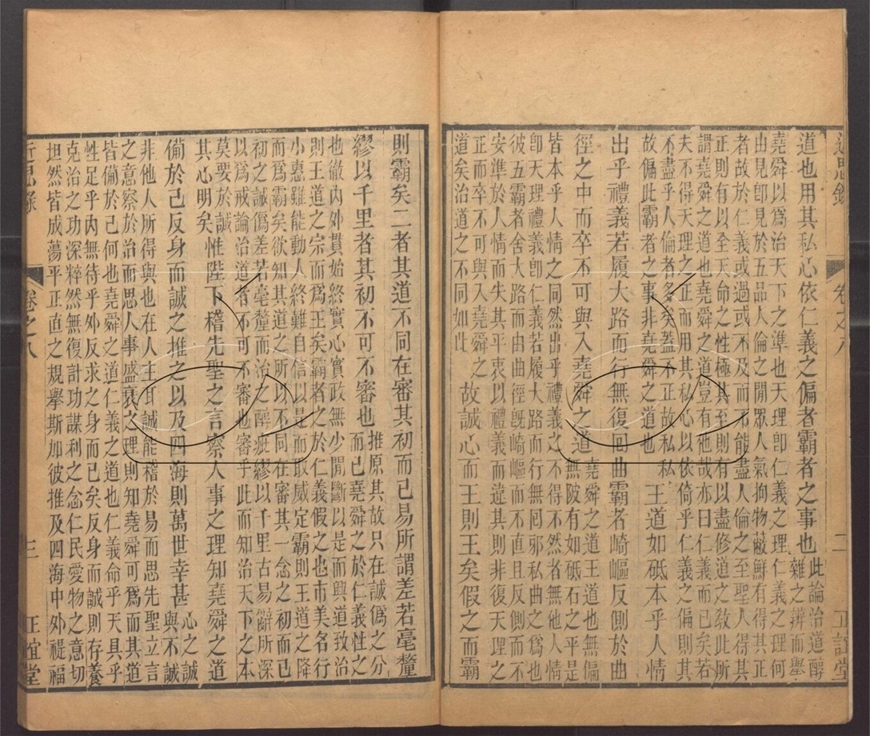 近思錄 卷之八 二 正誼堂
道也用其私心依仁義之偏者霸者之事也
此論治道醇
雜之辨而舉
堯舜以爲治天下之準也天理即仁義之理何
由見即見於五品人倫之閒眾人氣拘物蔽鮮有得其正
者故於仁義或過或不及而不能盡人倫之至聖人得其
正則有以全天命之性極其至則有以盡修道之敎此所
謂堯舜之道也堯舜之道豈有他哉亦曰仁義而已矣若
夫不得天理之正而用其私心以依倚乎仁義之偏則其
不盡乎人倫者多矣蓋不正故私私
故偏此霸者之事非堯舜之道也
王道如砥本乎人情
出乎禮義若履大路而行無復回曲霸者崎嶇反側於曲
徑之中而卒不可與入堯舜之道
堯舜之道王道也無偏
無陂有如砥石之平是
皆本乎人情之同然出乎禮義之不得不然者無他人情
即天理禮義即仁義若履大路而行無回邪私曲之爲也
彼五霸者舍大路而由曲徑旣崎嶇而不直且反側而不
安準於人情而失其平衷以禮義而違其則非復天理之
正而卒不可與入堯舜之
道矣治道之不同如此
故誠心而王則王矣假之而霸
則霸矣二者其道不同在審其初而已易所謂差若毫釐
繆以千里者其初不可不審也
推原其故只在誠僞之分
而已堯舜之於仁義性之
也徹內外貫始終實心實政無少閒斷以是而興道致治
則王道之宗而爲王矣霸者之於仁義假之也市美名行
小惠雖能動人終難自信以是而取威定霸則王道之降
而爲霸矣欲知其道之所以不同在審其一念之初而已
初之誠僞差若毫釐而治之醇疵繆以千里古易辭所深
以爲戒論治道者不可不審也審乎此而知治天下之本
莫要於誠
其心明矣
惟陛下稽先聖之言察人事之理知堯舜之道
備於己反身而誠之推之以及四海則萬世幸甚
心之誠
與不誠
非他人所得與也在人主耳誠能稽於易而思先聖立言
之意察於治而思人事盛衰之理則知堯舜可爲而其道
皆備於己何也堯舜之道仁義之道也仁義命乎天具乎
性足乎內無待乎外反求之身而已矣反身而誠則存養
克治之功深粹然無復計功謀利之念仁民愛物之意切
坦然皆成蕩平正直之規擧斯加彼推及四海中外禔福
近思錄 卷之八 三 正誼堂